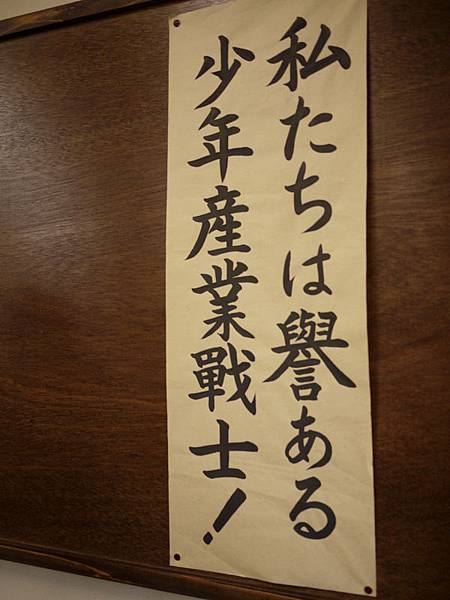 私たちは譽ある
少年産業戰士！